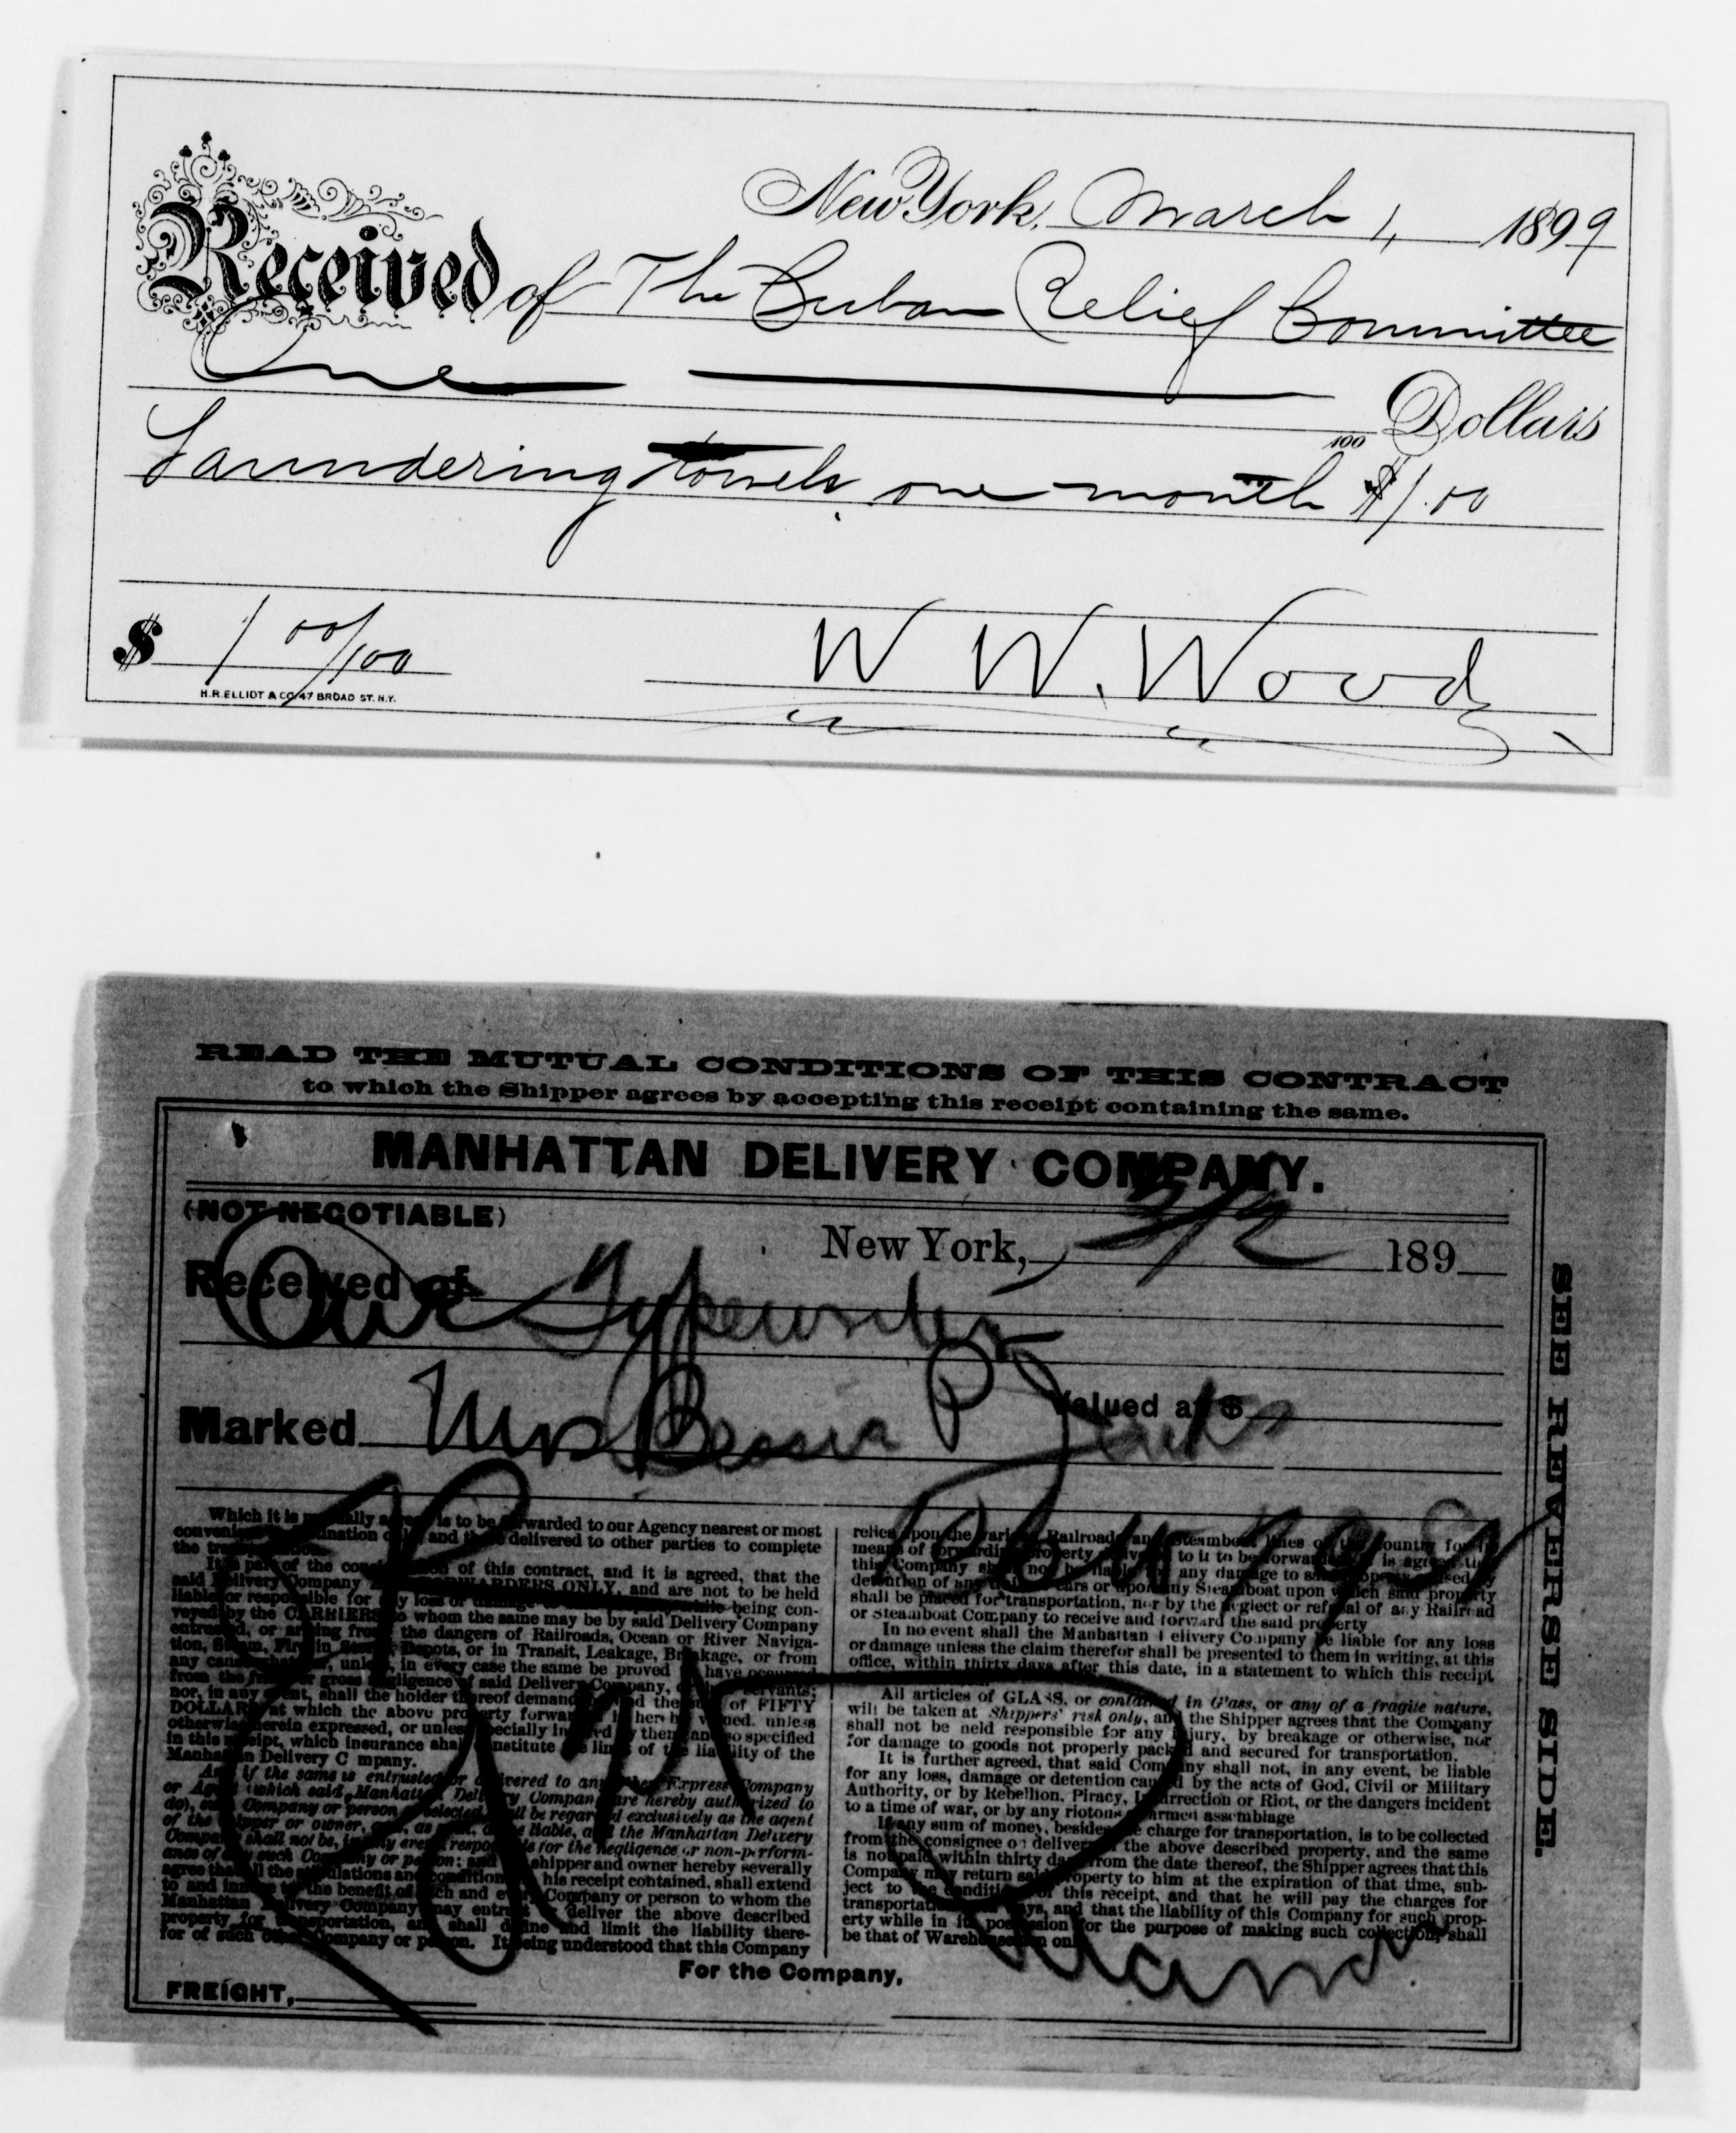 New York, March 1, 1899
Received of The Cuban Relief Committee
One Dollars
100
Laundering towels, one month $1.00
$ 1 00/100
W. W. Wood
H. R. ELLIOT & CO. 47 BROAD ST. N.Y.
READ THE MUTUAL CONDITIONS OF THIS CONTRACT
to which the Shipper agrees by accepting this receipt containing the same.
MANHATTAN DELIVERY COMPANY.
(NOT NEGOTIABLE)
New York, 189
Received of
One Typewriter
Valued at $
Marked Mrs P
Which it is mutually agreed is to be forwarded to our Agency nearest or most
convenient to destination only, and there delivered to other parties to complete
the transportation.
It is part of the consideration of this contract, and it is agreed, that the
said Delivery Company are FORWARDERS ONLY, and are not to be held
liable or responsible for any loss or damage to while being con-
veyed by the CARRIERS to whom the same may be by said Delivery Company
entrusted, or arising from the dangers of Railroads, Ocean or River Naviga-
tion, Steam, Fire in Stores, Depots, or in Transit, Leakage, Breakage, or from
any cause whatever, unless, in every case the same be proved to have occurred
from the fraud or gross negligence of said Delivery Company, or their servants;
nor, in any event, shall the holder thereof demand beyond the sum of FIFTY
DOLLARS, at which the above property forwarded is hereby valued, unless
otherwise herein expressed, or unless specially insured by them and so specified
in this receipt, which insurance shall constitute the limit of the liability of the
Manhattan Delivery Company.
And if the same is entrusted or delivered to any other Express Company
or Agent (which said Manhattan Delivery Company are hereby authorized to
do), such Company or person so selected shall be regarded exclusively as the agent
of the shipper or owner, and, as such, alone liable, and the Manhattan Delivery
Company shall not be, in any event, responsible for the negligence or non-perform-
ance of any such Company or person; and the shipper and owner hereby severally
agree that all the stipulations and conditions in this receipt contained, shall extend
to and inure to the benefit of each and every Company or person to whom the
Manhattan Delivery Company may entrust or deliver the above described
property for transportation, and shall define and limit the liability there-
for of such other Company or person. It being understood that this Company
relies upon the various Railroad and Steamboat lines of the country for its
means of forwarding property delivered to it to be forwarded, it is agreed that
this Company shall not be liable for any damage to said property caused by
detention of any train of cars or upon any Steamboat upon which said property
shall be placed for transportation, nor by the neglect or refusal of any Railroad
or Steamboat Company to receive and forward the said property
In no event shall the Manhattan Delivery Company be liable for any loss
or damage unless the claim therefor shall be presented to them in writing, at this
office, within thirty days after this date, in a statement to which this receipt
All articles of GLASS, or contained in Glass, or any of a fragile nature,
will be taken at Shippers' risk only, and the Shipper agrees that the Company
shall not be held responsible for any injury, by breakage or otherwise, nor
for damage to goods not properly packed and secured for transportation.
It is further agreed, that said Company shall not, in any event, be liable
for any loss, damage or detention caused by the acts of God, Civil or Military
Authority, or by Rebellion, Piracy, Insurrection or Riot, or the dangers incident
to a time of war, or by any riotous or armed assemblage
If any sum of money, besides the charge for transportation, is to be collected
from the consignee on delivery of the above described property, and the same
is not paid within thirty days from the date thereof, the Shipper agrees that this
Company may return said property to him at the expiration of that time, sub-
ject to the conditions of this receipt, and that he will pay the charges for
transportation both ways, and that the liability of this Company for such prop-
erty while in its possession for the purpose of making such collection, shall
be that of Warehousemen only.
For the Company,
FREIGHT,
SEE REVERSE SIDE.